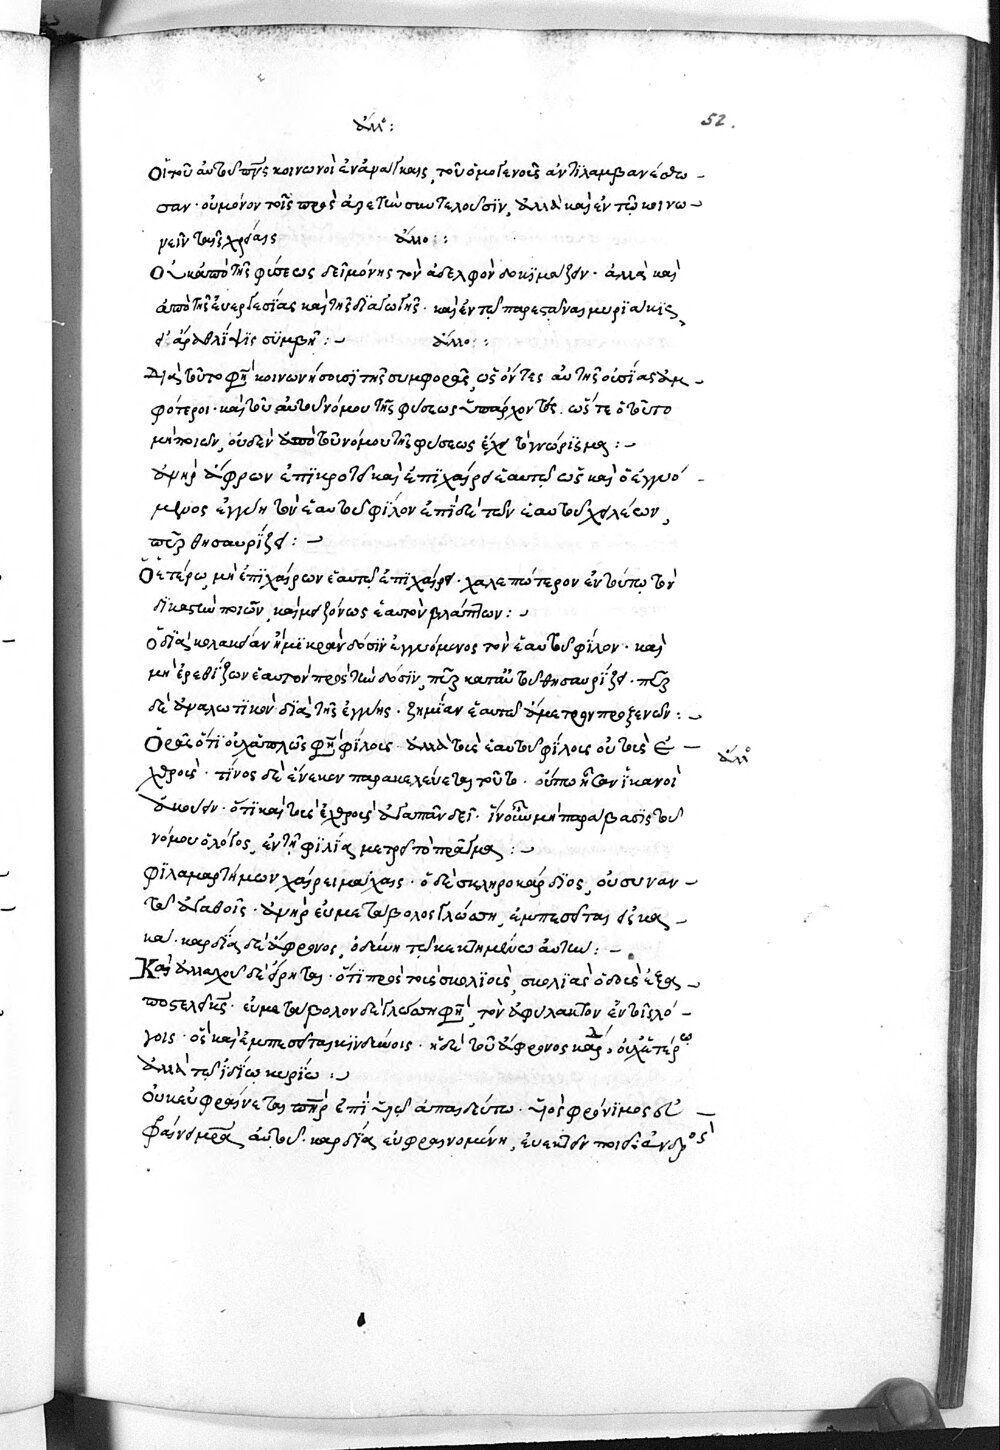 ἄλλο:
52.
Οἱ τοῦ αὐτοῦ π̅ρ̅ς κοινωνοὶ ἐν ἀνάγκαις, τοῦ ὁμογενοῦς ἀντιλαμβανέσθω –
σαν · οὐ μόνον τοῖς πρὸς ἀρετὴν συντελοῦσιν, ἀλλὰ καὶ ἐν τῷ κοινω –
νεῖν ταῖς χρείαις ἄλλο:
Οὐκ ἀπὸ τῆς φύσεως δεῖ μόνης τὸν ἀδελφὸν δοκιμάζειν · ἀλλὰ καὶ
ἀπὸ τῆς εὐεργεσίας καὶ τῆς διαγωγῆς · καὶ ἐν τῷ παρεστάναι μυριάκις,
εἰ ἄρα θλίψις συμβῇ: – ἄλλο:
Διὰ τοῦτο φη̅ κοινωνήσουσι τῆς συμφορᾶς, ὡς ὄντες αὐτῆς οὐσίας ἀμ –
φότεροι · καὶ τοῦ αὐτοῦ νόμου τῆς φύσεως ὑπάρχοντες. ὥστε ὁ τοῦτο
μὴ ποιῶν, οὐδὲν ἀπὸ τοῦ νόμου τῆς φύσεως ἔχει γνώρισμα: –
ἀνὴρ ἄφρων ἐπικροτεῖ καὶ ἐπιχαίρει ἑαυτῷ ὡς καὶ ὁ ἐγγυό –
μενος ἐγγύῃ τὸν ἑαυτοῦ φίλον ἐπὶ δὲ τῶν ἑαυτοῦ χειλέων,
πῦρ θησαυρίζει: –
Ὁ ἑτέρῳ μὴ ἐπιχαίρων ἑαυτῷ ἐπιχαίρει · χαλεπώτερον ἐν τούτῳ τὸν
δικαστὴν ποιῶν, καὶ μειζόνως ἑαυτὸν βλάπτων: –
Ὁ διὰ κολακείαν ἢ μικρὰν δόσιν ἐγγυόμενος τὸν ἑαυτοῦ φίλον · καὶ
μὴ ἐρεθίζων ἑαυτὸν πρὸς τὴν δόσιν, πῦρ καθ' αὑτοῦ θησαυρίζει · πῦρ
δὲ ἀναλωτικὸν διὰ τῆς ἐγγύης · ζημίαν ἑαυτῷ ἄμετρον προξενῶν: –
Ὁρᾷς ὅτι οὐχ ἁπλῶς φη̅ φίλοις · ἀλλὰ τοῖς ἑαυτοῦ φίλοις οὐ τοῖς ἐ –
ἄλλο
χθροῖς · τίνος δὲ ἕνεκεν παρακελεύεται τοῦτο · οὔπω ἦσαν ἱκανοὶ
ἀκούειν · ὅτι καὶ τοὺς ἐχθροὺς ἀγαπᾶν δεῖ · ἵν' οὖν μὴ παράβασις τοῦ
νόμου ὁ λόγος, ἐν τῇ φιλίᾳ μετρεῖ τὸ πρᾶγμα: –
Φιλαμαρτήμων χαίρει μάχαις · ὁ δὲ σκληροκάρδιος, οὐ συναν –
τᾷ ἀγαθοῖς · ἀνὴρ εὐμετάβολος γλώσσῃ, ἐμπεσεῖται εἰς κα –
κά · καρδία δὲ ἄφρονος, ὀδύνη τῷ κεκτημένῳ αὐτήν: –
Καὶ ἀλλαχοῦ δὲ εἴρηται · ὅτι πρὸς τοὺς σκολιοὺς, σκολιὰς ὁδοὺς ἐξα –
ποστελεῖ κ̅ς · εὐμετάβολον δὲ γλώσσῃ φη̅, τὸν ἀφύλακτον ἐν τοῖς λό –
γοις · ὃς καὶ ἐμπεσεῖται κινδύνοις · ἡ δὲ τοῦ ἄφρονος καρδ, οὐχ ἑτέρῳ
ἀλλὰ τῷ ἰδίῳ κυρίῳ: –
Οὐκ εὐφραίνεται π̅η̅ρ ἐπὶ υἱῷ ἀπαιδεύτῳ · υἱὸς φρόνιμος εὐ –
φραίνει μ̅ρ̅α αὐτοῦ · καρδία εὐφραινομένη, εὐεκτεῖν ποιεῖ ἀνδρὸς